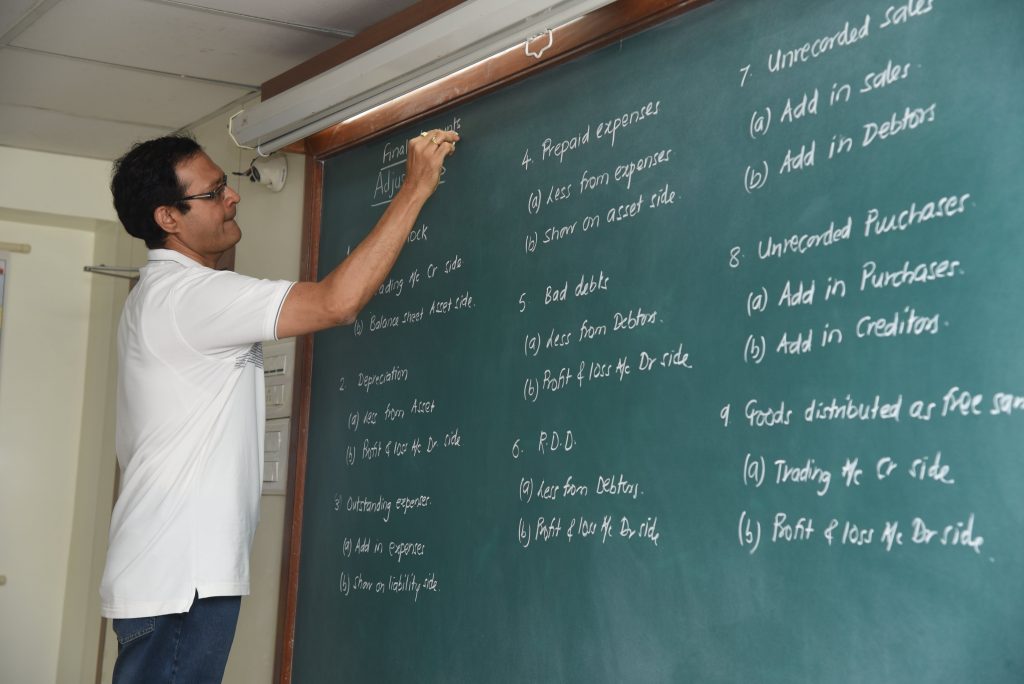 Final
1.
(a) Trading A/c Cr side
(b) Balance sheet Asset side.
2 Depreciation
(a) Less from Asset
(b) Profit & loss A/c Dr side
3 Outstanding expenses.
(a) Add in expenses
(b) Show on liability side.
4. Prepaid expenses
(a) Less from expenses
(b) Show on asset side.
5 Bad debts
(a) Less from Debtors.
(b) Profit & loss A/c Dr side
6. R.D.D.
(a) Less from Debtors.
(b) Profit & loss A/c Dr side
7. Unrecorded sales
(a) Add in sales.
(b) Add in Debtors
8. Unrecorded Purchases.
(a) Add in Purchases.
(b) Add in Creditors.
9 Goods distributed as free
(a) Trading A/c Cr side
(b) Profit & loss A/c Dr side.